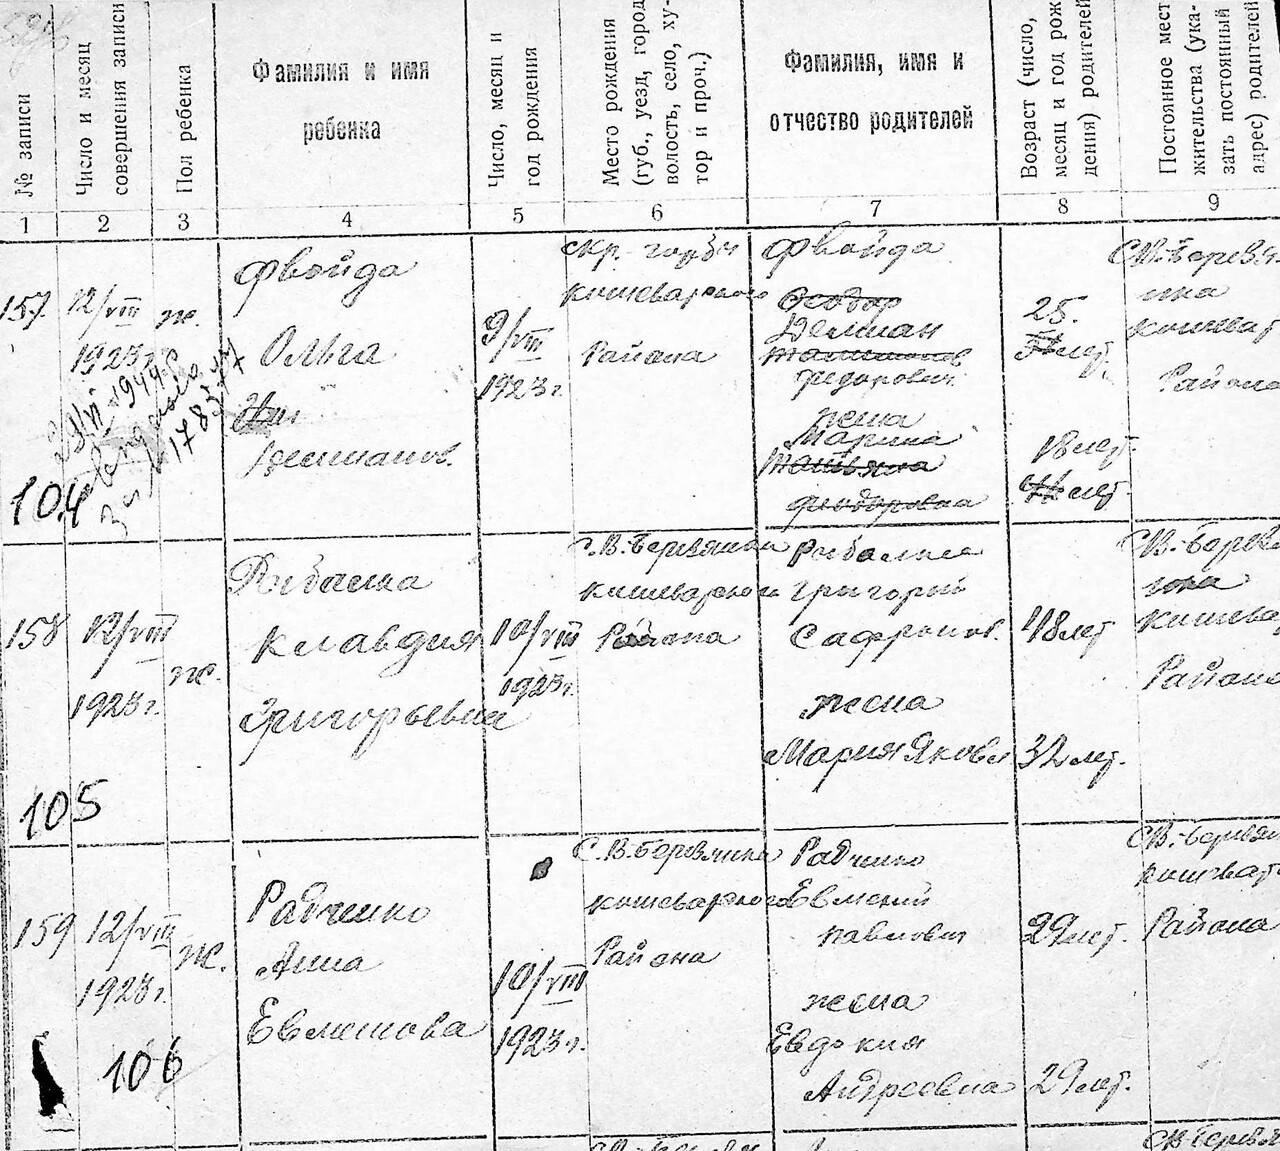 № записи
Число и месяц
совершения записи
Пол ребенка
Фамилия и имя
ребенка
Число, месяц и
год рождения
Место рождения
(губ., уезд, город
волость, село, ху-
тор и проч.)
Фамилия, имя и
отчество родителей
Возраст (число,
месяц и год рож
дения) родителей
Постоянное мест
жительства (ука-
зать постоянный
адрес) родителей
1 2 3 4 5 6 7 8 9
157
12/VIII
1923 г.
ж.
Фвойда
Ольга
Демианов.
9/VIII
1923 г.
кошеварского
Района
Фвойда
Феодор
Демиан
Федорович
жена
Марина
Татьяна
Феодоровна
25.
лет
18 лет.
44 лет.
кошеват
Района
29/VI 1944
178577
104
158
12/VIII
1923 г.
ж.
Рибалка
Клавдия
Григорьевна
10/VIII
1923 г.
С.В.-Березянки
кошеварского
Района
Рибалка
Григорий
Сафронов.
48 лет
жена
Мария Яковл
32 лет.
СВ.-Берез
кошева
Района
105
159
12/VIII
1923 г.
ж.
Радченко
Анна
Евменова
10/VIII
1923 г.
С.В.Березянка
кошеварского
Района
Радченко
Евмений
павлович
29 лет.
жена
Евдокия
Андреевна
29 лет.
СВ.-Березян
кошеват
Района
106